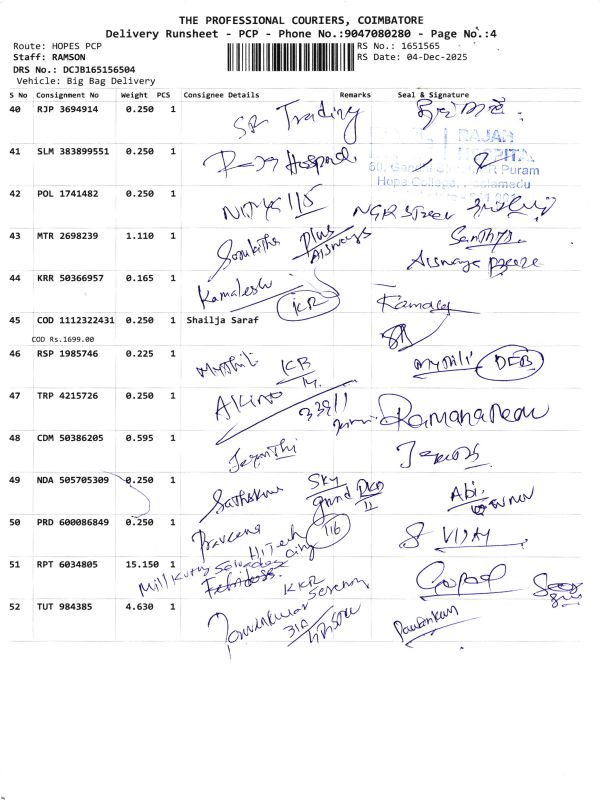 THE PROFESSIONAL COURIERS, COIMBATORE
Delivery Runsheet - PCP - Phone No.:9047080280 - Page No.:4
Route: HOPES PCP RS No.: 1651565
Staff: RAMSON RS Date: 04-Dec-2025
DRS No.: DCJB165156504
Vehicle: Big Bag Delivery
S No Consignment No Weight PCS Consignee Details Remarks Seal & Signature
40 RJP 3694914 0.250 1 SR Trading
41 SLM 383899551 0.250 1 Hospital
RAJAN
HOSPITA
Puram
Hope College, Peelamedu
42 POL 1741482 0.250 1 115 NGR street
43 MTR 2698239 1.110 1 Plus Santhya
Aiswarya
44 KRR 50366957 0.165 1 Kamalesh KR Kamaley
45 COD 1112322431 0.250 1 Shailja Saraf
COD Rs.1699.00 SR
46 RSP 1985746 0.225 1 Mythili KB Mythili DEB
47 TRP 4215726 0.250 1 339/1
48 CDM 50386205 0.595 1 Jeyanthi
49 NDA 505705309 0.250 1 Sky Abi
grand
50 PRD 600086849 0.250 1 Praveena HiTech City 116 VIJAY
51 RPT 6034805 15.150 1 KKR Gopal
52 TUT 984385 4.630 1 310 Pavankum